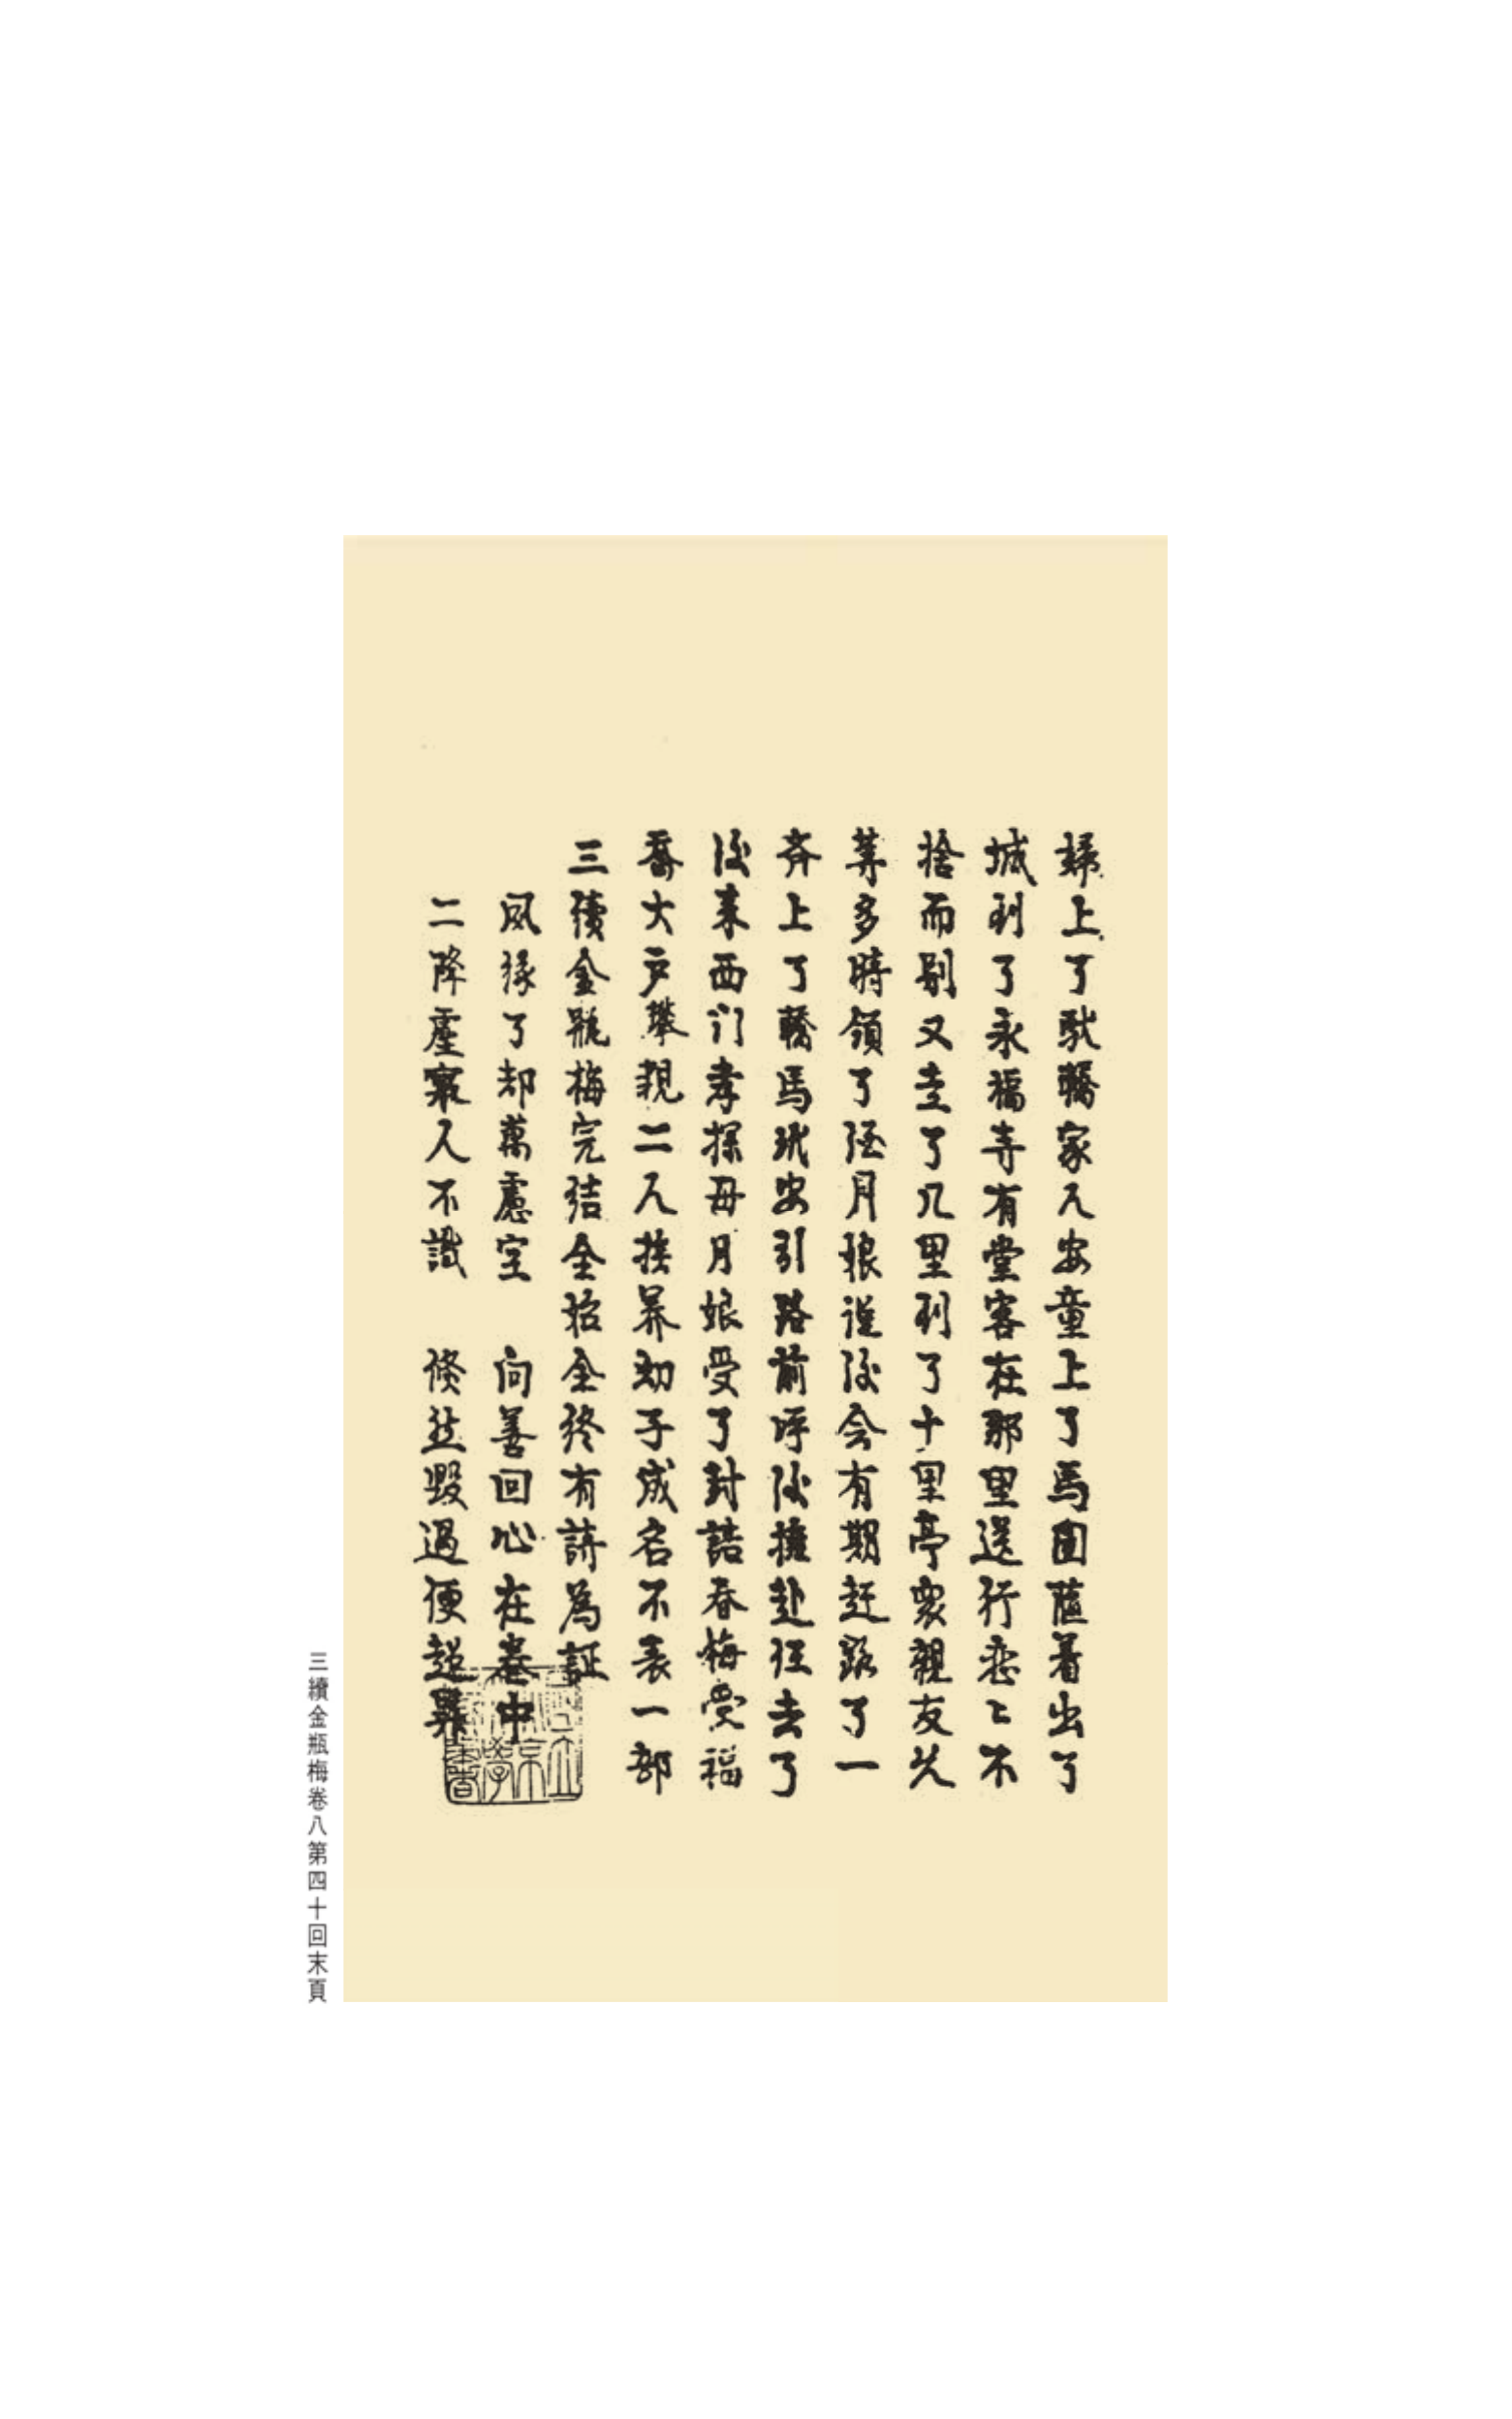 婦上了馱轎家人安童上了馬圍隨着出了
城到了永福寺有堂客在那里送行恋〻不
捨而别又走了几里到了十里亭衆親友久
等多時領了侄月娘説後会有期赶路了一
齐上了轎馬玳安引路前呼後擁赴任去了
後来西门孝採母月娘受了封誥春梅受福
喬大户攀親二人扶养幼子成名不表一部
三續金瓶梅完结全始全终有詩為証
风缘了却萬慮空 向善回心在卷中
二降塵寰人不識 倏然毀過便超昇
三續金瓶梅卷八第四十回末頁